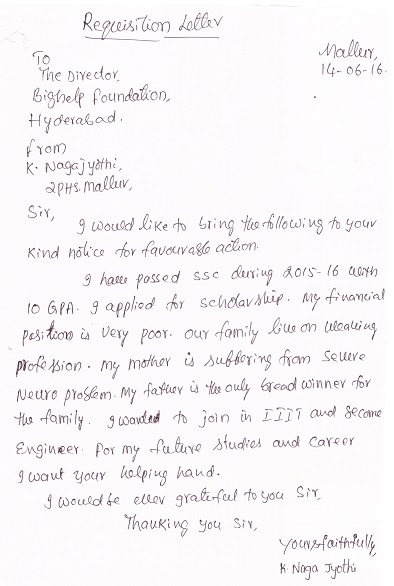 Requisition Letter
Mallur,
14-06-16.
To
The Director.
Bighelp foundation,
Hyderabad.
from
K. Nagajyothi,
ZPHS. Mallur,
Sir,
I would like to bring the following to your
kind notice for favourable action.
I have passed SSC during 2015-16 with
10 GPA. I applied for scholarship. My financial
position is very poor. our family live on weaving
profession. my mother is suffering from severe
Neuro problem. My father is the only bread winner for
the family. I wanted to join in IIIT and become
Engineer. For my future studies and career
I want your helping hand.
I would be ever grateful to you Sir,
Thanking you Sir,
Yours faithfully,
K. Naga Jyothi